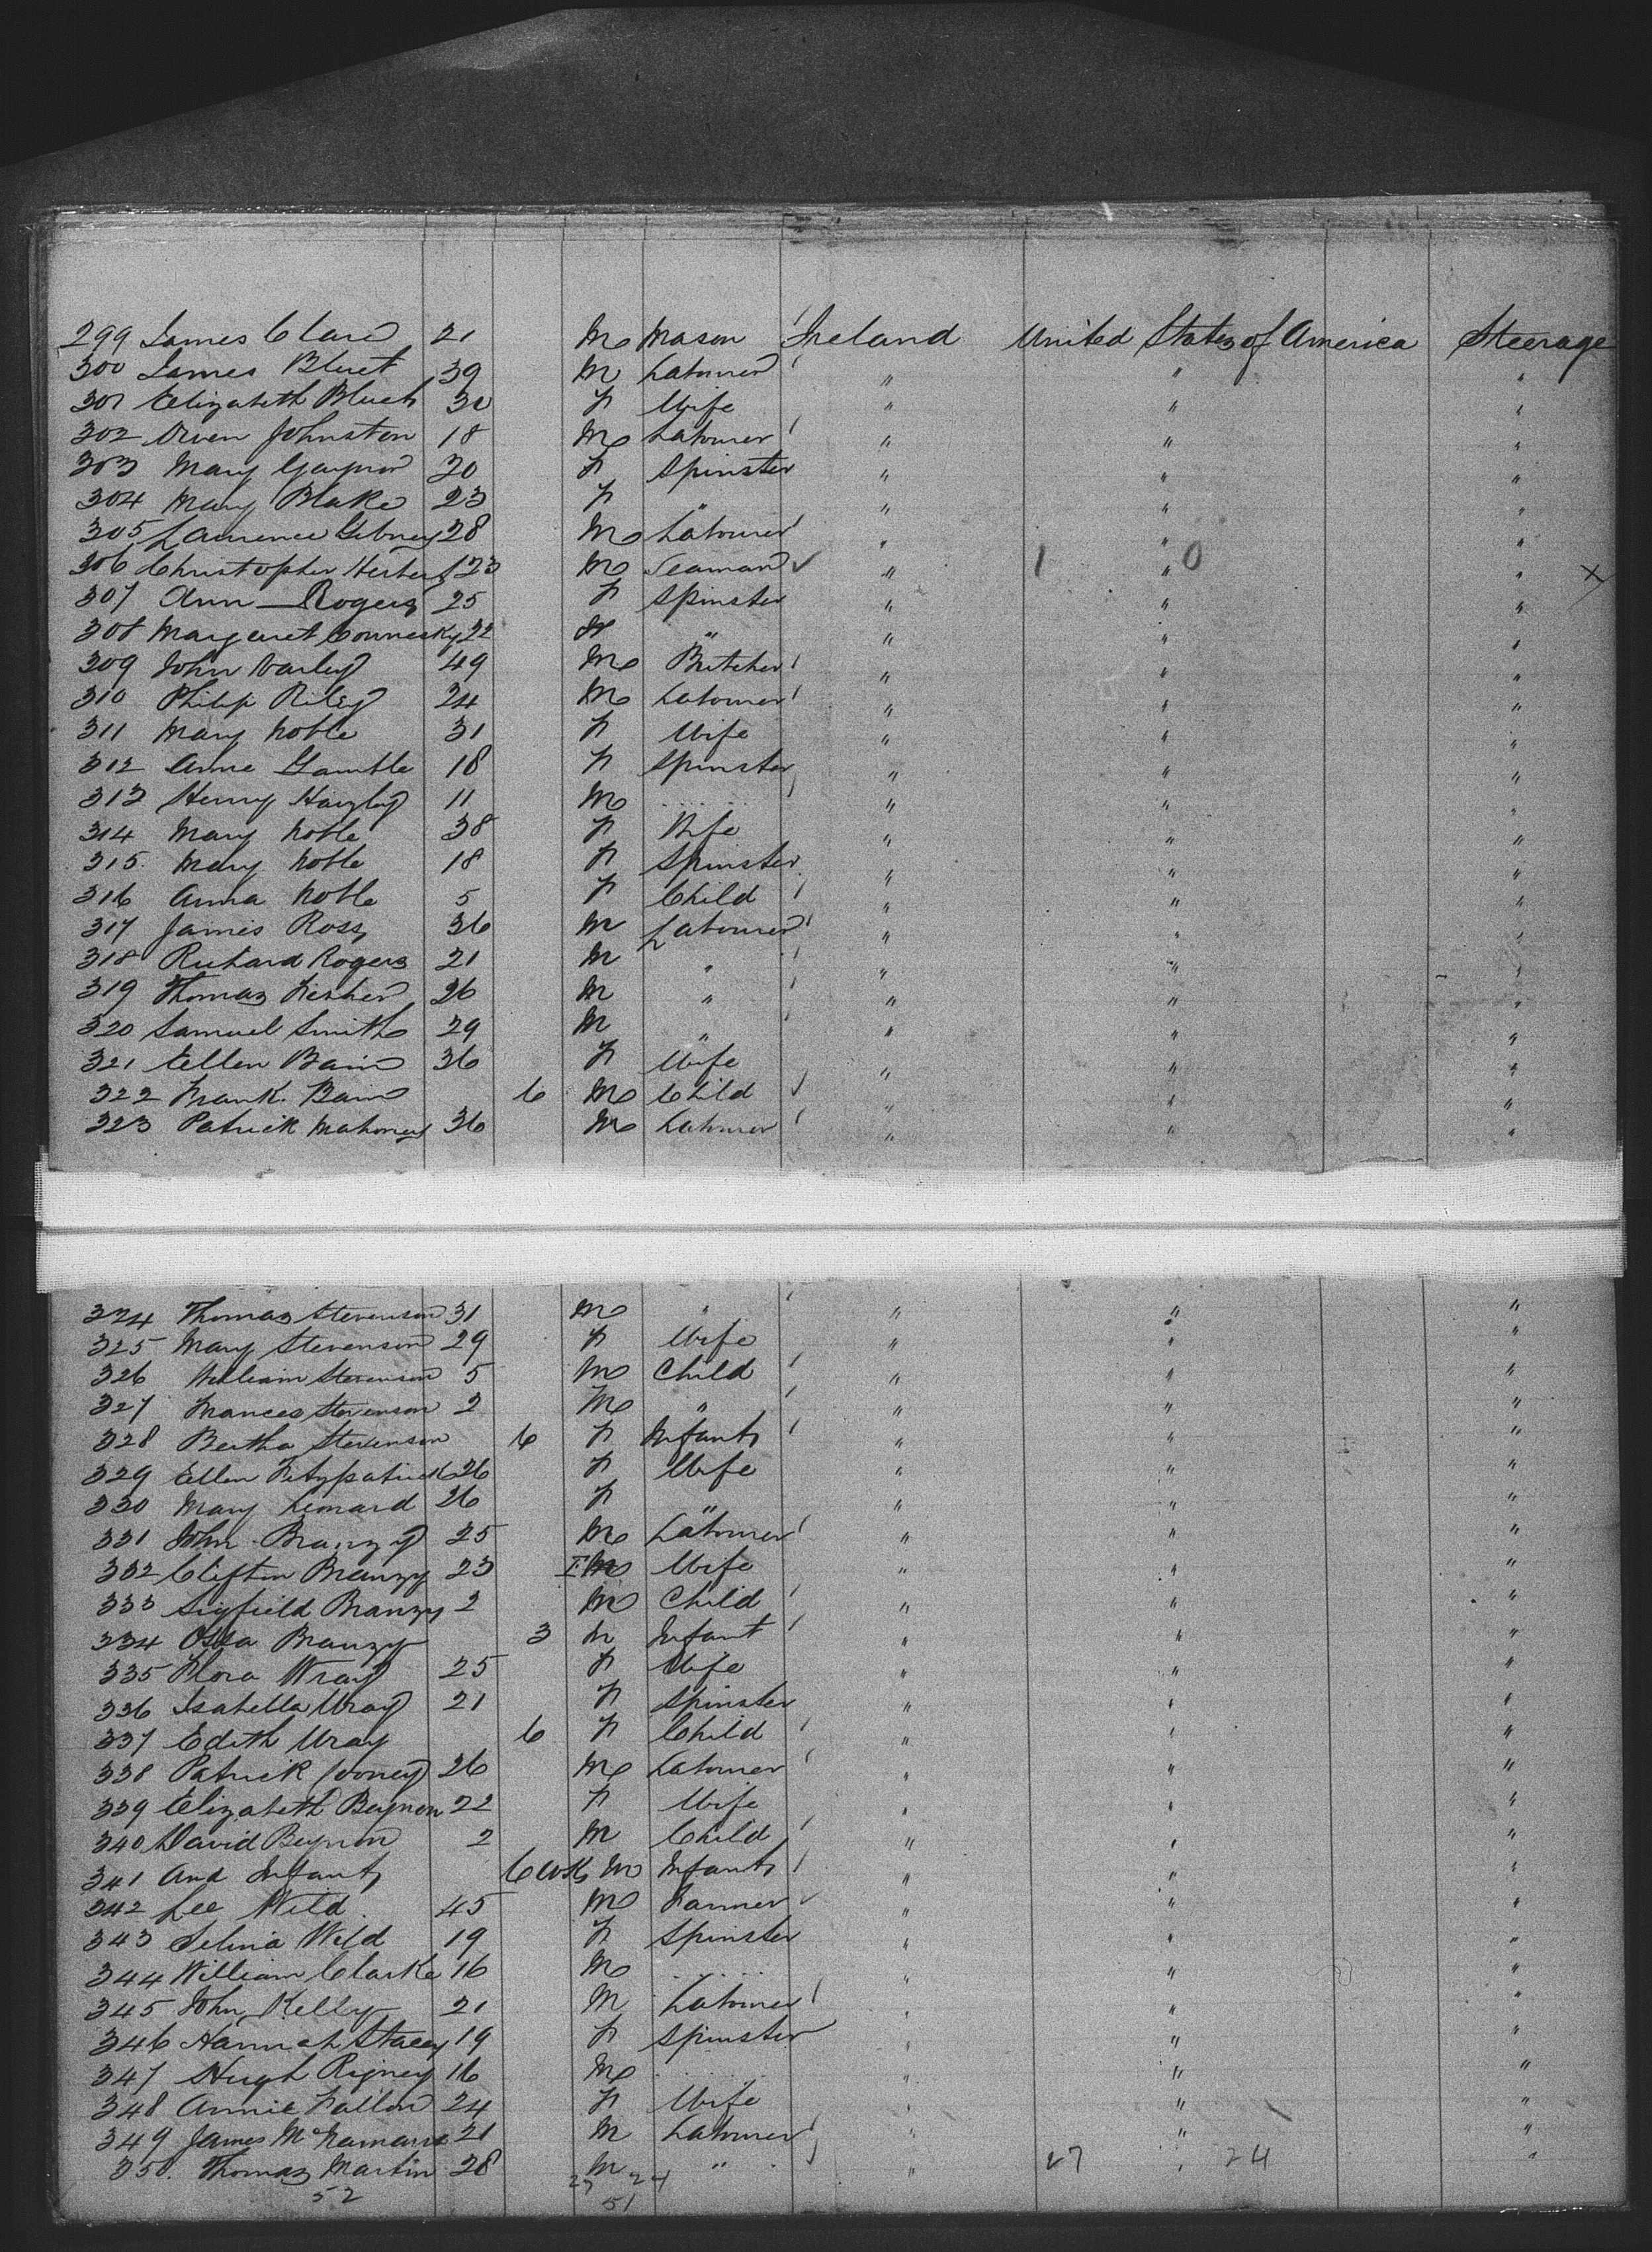 299 James Clare 21 M Mason Ireland United States of America Steerage
300 James Bluet 39 M Labourer " " "
301 Elizabeth Bluet 30 F Wife " " "
302 Owen Johnston 18 M Labourer " " "
303 Mary Gaynor 20 F Spinster " " "
304 Mary Blake 23 F " " " "
305 Laurence Gibney 28 M Labourer " " "
306 Christopher Herbert 23 M Seaman " 1 " 0 " X
307 Ann Rogers 25 F Spinster " " "
308 Margaret 22 F " " " "
309 John Varley 49 M Butcher " " "
310 Philip Riley 24 M Labourer " " "
311 Mary Noble 31 F Wife " " "
312 Anne Gamble 18 F Spinster " " "
313 Henry 11 M " " "
314 Mary Noble 38 F Wife " " "
315 Mary Noble 18 F Spinster " " "
316 Anna Noble 5 F Child " " "
317 James Ross 36 M Labourer " " "
318 Richard Rogers 21 M " " " "
319 Thomas Fisher 26 M " " " "
320 Samuel Smith 29 M " " " "
321 Ellen Bain 36 F Wife " " "
322 Frank Bain 6 M Child " " "
323 Patrick Mahoney 36 M Labourer " " "
324 Thomas Stevenson 31 M " " " "
325 Mary Stevenson 29 F Wife " " "
326 William Stevenson 5 M Child " " "
327 Frances Stevenson 2 M " " " "
328 Bertha Stevenson 6 F Infant " " "
329 Ellen Fitzpatrick 26 F Wife " " "
330 Mary Leonard 26 F " " " "
331 John Branzy 25 M Labourer " " "
332 Clifton Branzy 23 F M Wife " " "
333 Sigfield Branzy 2 M Child " " "
334 Branzy 3 Infant " " "
335 Flora Wray 25 F Wife " " "
336 Isabella Wray 21 F Spinster " " "
337 Edith Wray 6 F Child " " "
338 Patrick 26 M Labourer " " "
339 Elizabeth Beynon 22 F Wife " " "
340 David Beynon 2 M Child " " "
341 And Infant 6 wks M Infant " " "
342 Lee Wild 45 M Farmer " " "
343 Selina Wild 19 F Spinster " " "
344 William Clarke 16 M " " "
345 John Kelly 21 M Labourer " " "
346 Hannah Stacey 19 F Spinster " " "
347 Hugh Rigney 16 M " " "
348 Annie Fallon 24 F Wife " " "
349 James McNamara 21 M Labourer " " "
350. Thomas Martin 28 M " " 27 " 24 "
52 27 24
51